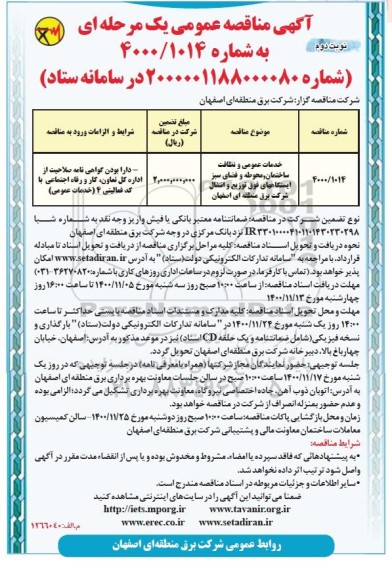 آگهی مناقصه عمومی یک مرحله ای
نوبت دوم
به شماره ۴۰۰۰/۱۰۱۴
(شماره ۲۰۰۰۰۰۱۱۸۸۰۰۰۰۸۰ در سامانه ستاد)
شرکت مناقصه گزار: شرکت برق منطقه‌ای اصفهان
شماره مناقصه
موضوع مناقصه
مبلغ تضمین شرکت در مناقصه (ریال)
شرایط و الزامات ورود به مناقصه
۴۰۰۰/۱۰۱۴
خدمات عمومی و نظافت ساختمان، محوطه و فضای سبز ایستگاههای فوق توزیع و انتقال شرکت برق منطقه ای اصفهان
۲,۰۰۰,۰۰۰,۰۰۰
- دارا بودن گواهی نامه صلاحیت از اداره کل تعاون، کار و رفاه اجتماعی با کد فعالیتی ۴ (خدمات عمومی)
نوع تضمین شرکت در مناقصه: ضمانتنامه معتبر بانکی یا فیش واریز وجه نقد به شماره شبا
نزد بانک مرکزی در وجه شرکت برق منطقه ای اصفهان
نحوه دریافت و تحویل اسناد مناقصه: کلیه مراحل برگزاری مناقصه از دریافت و تحویل اسناد تا مبادله
قرارداد، با مراجعه به "سامانه تدارکات الکترونیکی دولت (ستاد)" به آدرس www.setadiran.ir امکان
پذیر خواهد بود. (تماس با کارفرما، در صورت لزوم در ساعات اداری روزهای کاری با شماره: ۳۶۲۷۰۸۲۰-۰۳۱)
مهلت دریافت اسناد مناقصه: از ساعت ۱۰:۰۰ صبح روز سه شنبه مورخ ۱۴۰۰/۱۱/۰۵ تا ساعت ۱۶:۰۰ روز
چهارشنبه مورخ ۱۴۰۰/۱۱/۱۳
مهلت و محل تحویل اسناد مناقصه: کلیه مدارک و مستندات اسناد مناقصه بایستی حداکثر تا ساعت
۱۴:۰۰ روز یک شنبه مورخ ۱۴۰۰/۱۱/۲۴ در "سامانه تدارکات الکترونیکی دولت (ستاد)" بارگذاری و
نسخه فیزیکی (شامل ضمانتنامه و یک حلقه CD اسناد) نیز در موعد مذکور به آدرس: اصفهان، خیابان
چهارباغ بالا، دبیرخانه شرکت برق منطقه‌ای اصفهان تحویل گردد.
جلسه توجیهی: حضور نمایندگان مجاز شرکتها (همراه با معرفی نامه) در جلسه توجیهی که در روز یک
شنبه مورخ ۱۴۰۰/۱۱/۱۷ ساعت ۱۰:۰۰ صبح در سالن جلسات معاونت بهره برداری برق منطقه ای اصفهان
به آدرس: اتوبان ذوب آهن، جاده اختصاصی نیروگاه، معاونت بهره برداری تشکیل می گردد؛ الزامی بوده
و عدم حضور بمنزله انصراف از شرکت در مناقصه خواهد بود.
زمان و محل بازگشایی پاکات مناقصه: ساعت ۱۰:۰۰ صبح روز دوشنبه مورخ ۱۴۰۰/۱۱/۲۵ - سالن کمیسیون
معاملات ساختمان معاونت مالی و پشتیبانی شرکت برق منطقه‌ای اصفهان
شرایط مناقصه:
- به پیشنهادهائی که فاقد سپرده یا امضاء، مشروط و مخدوش بوده و یا پس از انقضاء مدت مقرر در آگهی
واصل شود ترتیب اثر داده نخواهد شد.
- سایر اطلاعات و جزئیات مربوطه در اسناد مناقصه مندرج است.
ضمنا می توانید این آگهی را در سایت های اینترنتی مشاهده کنید
http://iets.mporg.ir www.tavanir.org.ir
www.erec.co.ir www.setadiran.ir
م.الف: ۱۲۶۶۰۴۰
روابط عمومی شرکت برق منطقه‌ای اصفهان